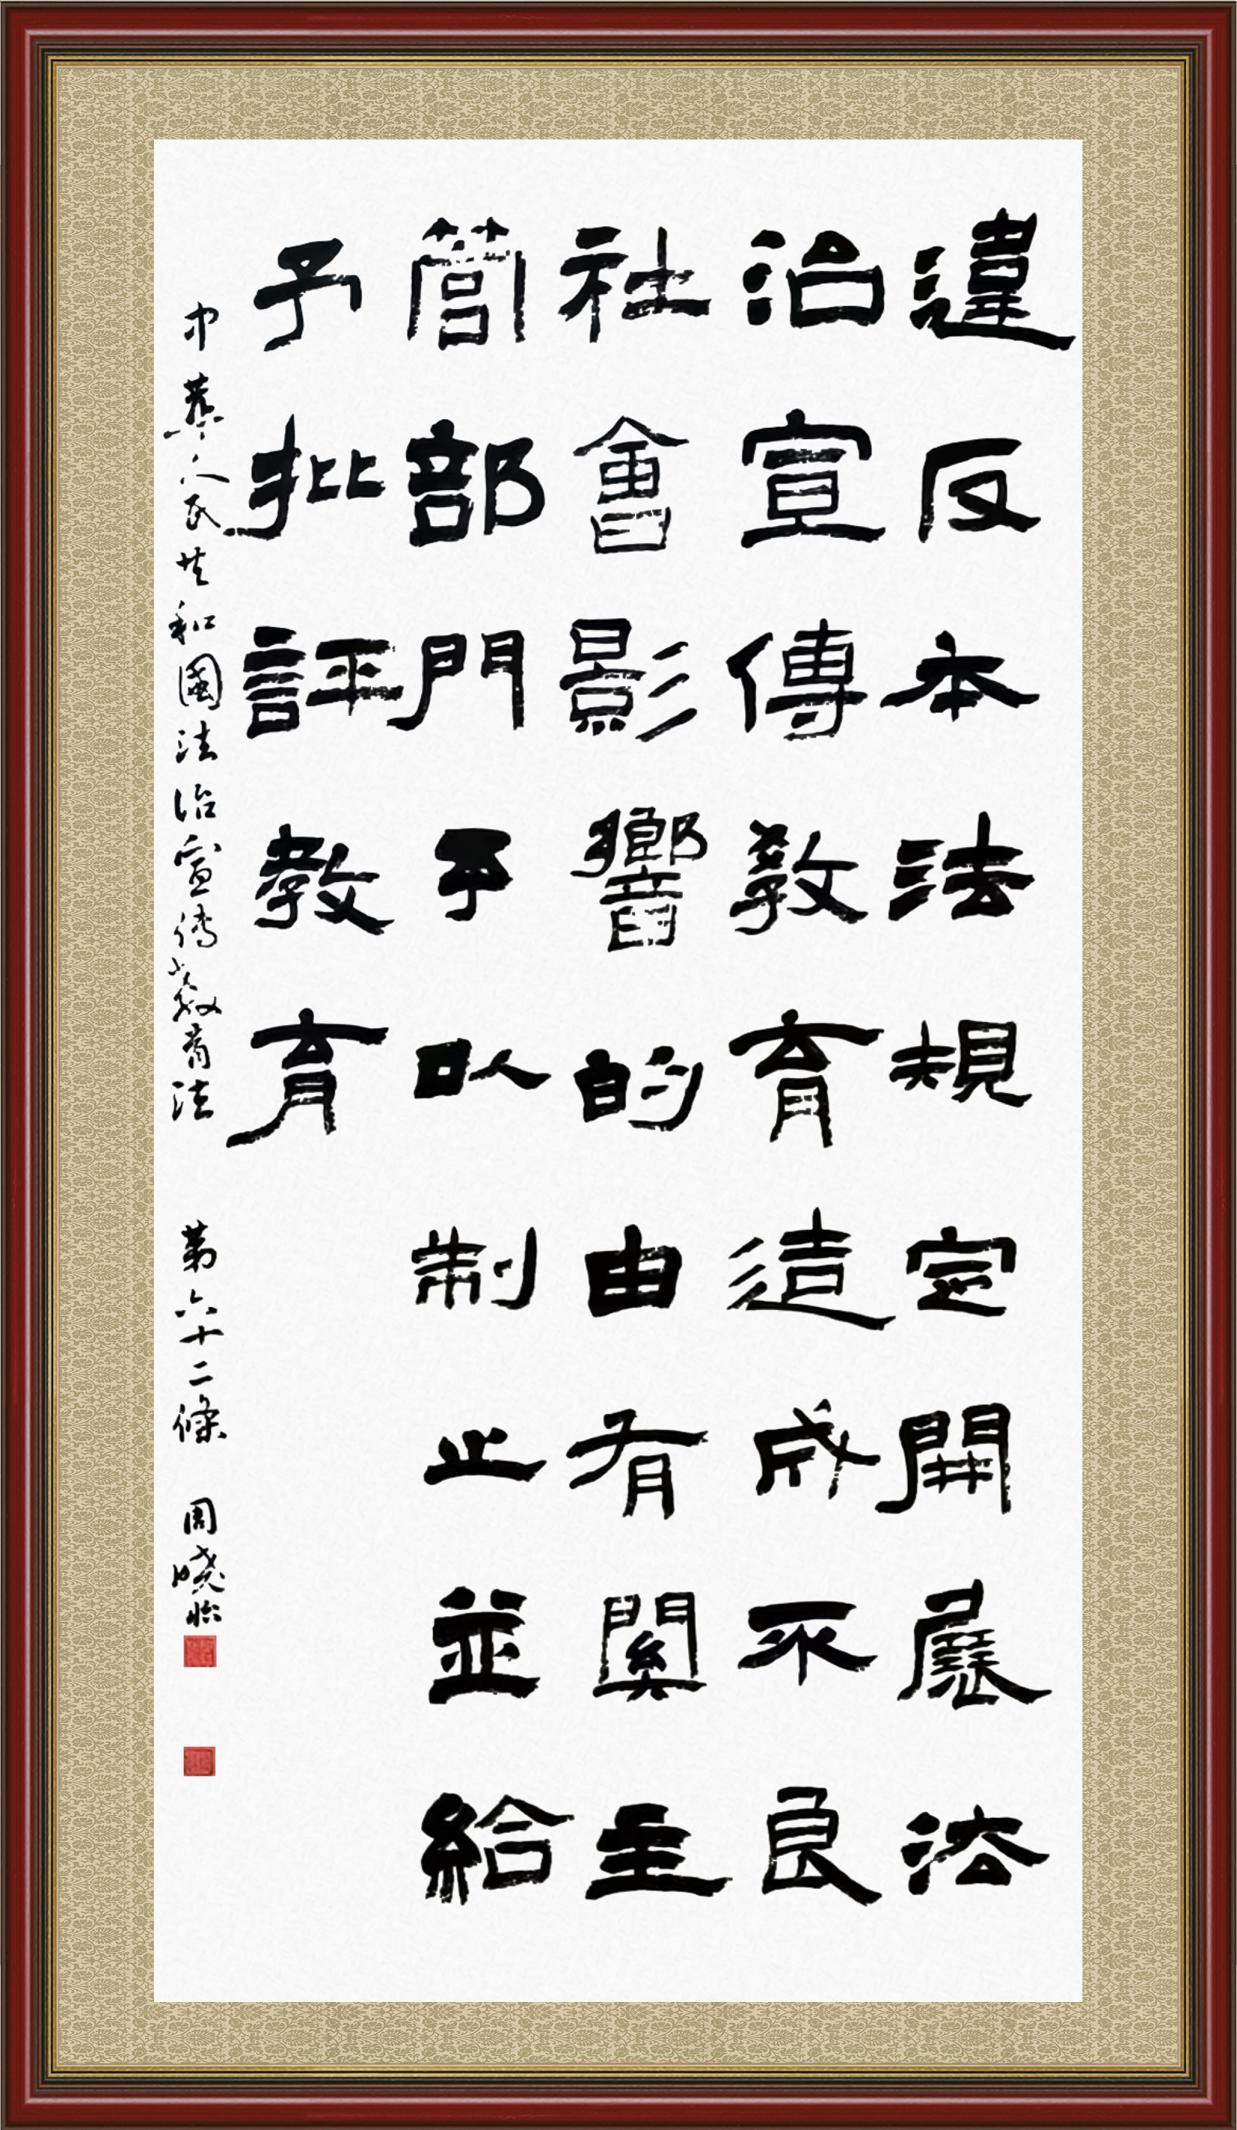 違反本法規定開展法
治宣傳教育造成不良
社會影響的由有關主
管部門予以制止並給
予批評教育
中華人民共和國法治宣傳教育法 第六十二條 周曉怡